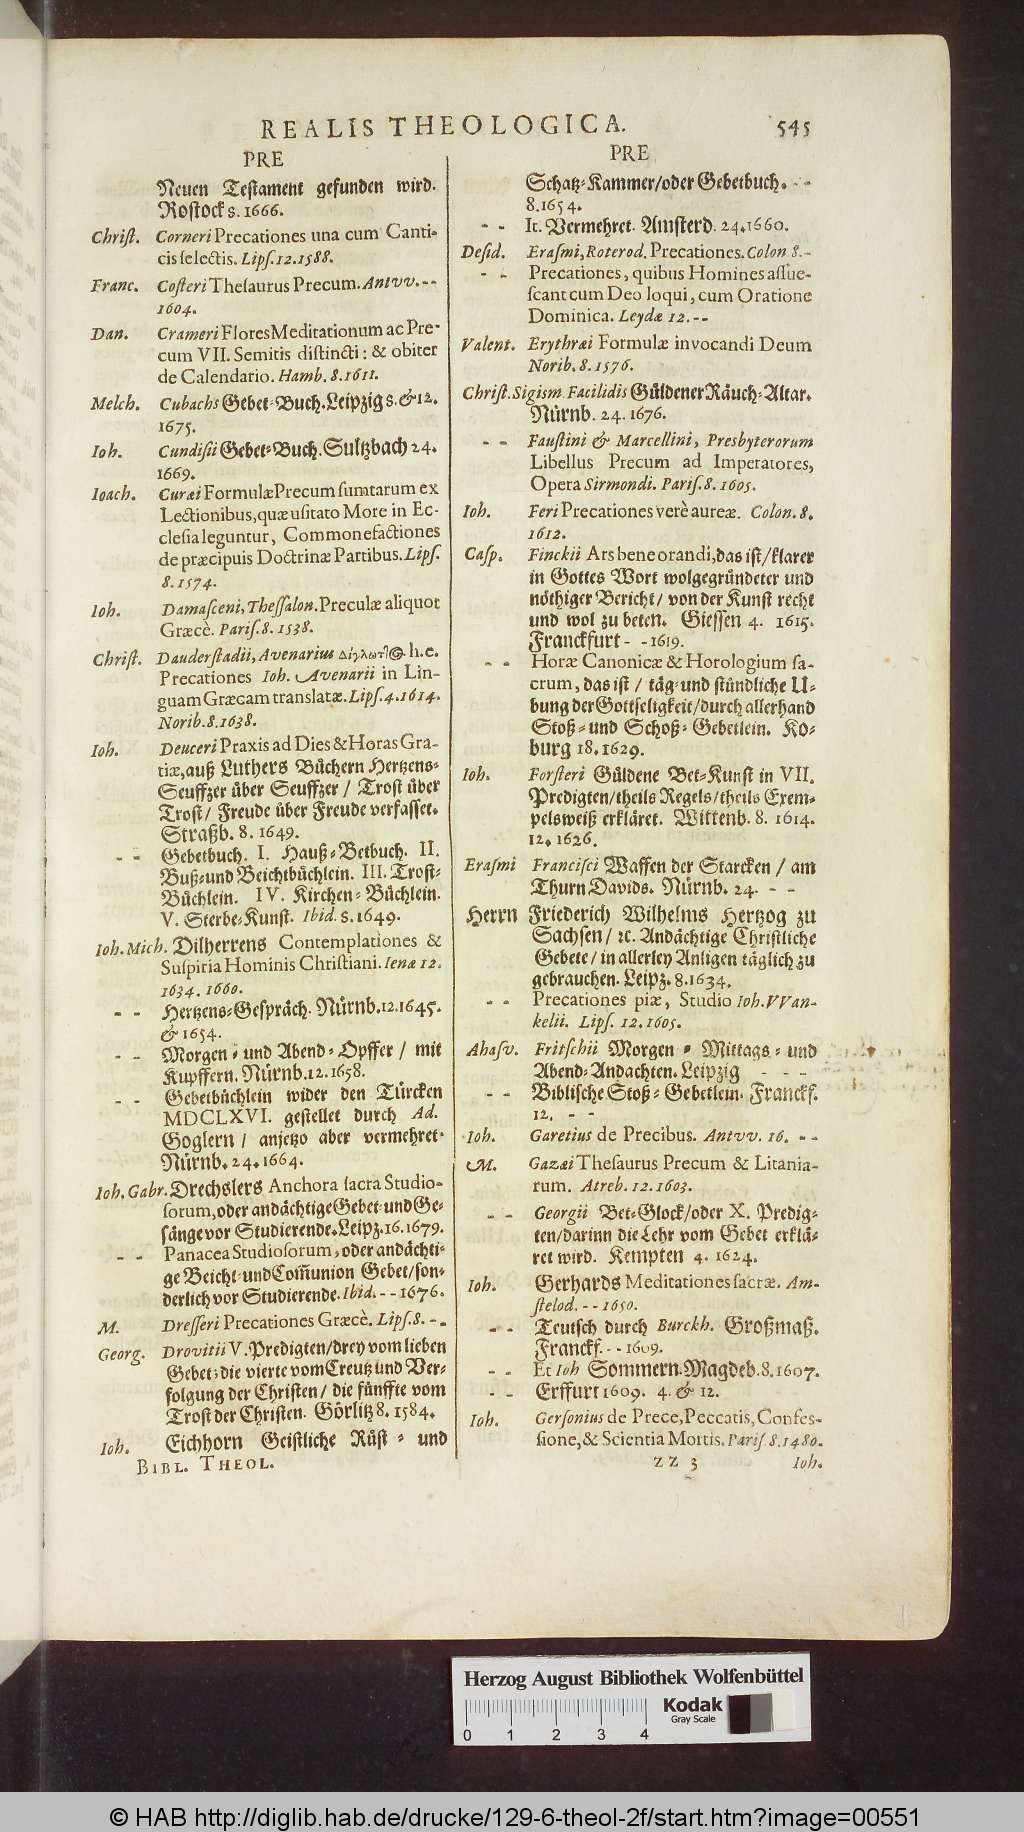 REALIS THEOLOGICA. 545
PRE
Neuen Testament gefunden wird.
Rostock 8. 1666.
Christ. Corneri Precationes una cum Canti-
cis selectis. Lips. 12. 1588.
Franc. Costeri Thesaurus Precum. Antvv. --
1604.
Dan. Crameri Flores Meditationum ac Pre-
cum VII. Semitis distincti: & obiter
de Calendario. Hamb. 8. 1611.
Melch. Cubachs Gebet-Buch. Leipzig 8. & 12.
1675.
Ioh. Cundisii Gebet-Buch. Sultzbach 24.
1669.
Ioach. Curæi Formulæ Precum sumtarum ex
Lectionibus, quæ usitato More in Ec-
clesia leguntur, Commonefactiones
de præcipuis Doctrinæ Partibus. Lips.
8. 1574.
Ioh. Damasceni, Thessalon. Preculæ aliquot
Græcè. Paris. 8. 1538.
Christ. Dauderstadii, Avenarius h. e.
Precationes Ioh. Avenarii in Lin-
guam Græcam translatæ. Lips. 4. 1614.
Norib. 8. 1638.
Ioh. Deuceri Praxis ad Dies & Horas Gra-
tiæ, auß Luthers Büchern Hertzens-
Seuffzer über Seuffzer / Trost über
Trost / Freude über Freude verfasset.
Straßb. 8. 1649.
-- Gebetbuch. I. Hauß-Betbuch. II.
Buß- und Beichtbüchlein. III. Trost-
Büchlein. IV. Kirchen-Büchlein.
V. Sterbe-Kunst. Ibid. 8. 1649.
Ioh. Mich. Dilherrens Contemplationes &
Suspiria Hominis Christiani. Ienæ 12.
1634. 1660.
-- Hertzens-Gespräch. Nürnb. 12. 1645.
& 1654.
-- Morgen- und Abend-Opffer / mit
Kupffern. Nürnb. 12. 1658.
-- Gebetbüchlein wider den Türcken
MDCLXVI. gestellet durch Ad.
Goglern / anjetzo aber vermehret.
Nürnb. 24. 1664.
Ioh. Gabr. Drechslers Anchora sacra Studio-
sorum, oder andächtige Gebet und Ge-
sänge vor Studierende. Leipz. 16. 1679.
-- Panacea Studiosorum, oder andächti-
ge Beicht- und Com̃union Gebet / son-
derlich vor Studierende. Ibid. -- 1676.
M. Dresseri Precationes Græcè. Lips. 8. --
Georg. Drovitii V. Predigten / drey vom lieben
Gebet; die vierte vom Creutz und Ver-
folgung der Christen / die fünffte vom
Trost der Christen. Görlitz 8. 1584.
Ioh. Eichhorn Geistliche Rüst- und
BIBL. THEOL.
PRE
Schatz-Kammer / oder Gebetbuch. --
8. 1654.
-- It. Vermehret. Amsterd. 24. 1660.
Desid. Erasmi, Roterod. Precationes. Colon 8. --
-- Precationes, quibus Homines assue-
scant cum Deo loqui, cum Oratione
Dominica. Leydæ 12. --
Valent. Erythræi Formulæ invocandi Deum
Norib. 8. 1576.
Christ. Sigism. Facilidis Güldener Räuch-Altar.
Nürnb. 24. 1676.
-- Faustini & Marcellini, Presbyterorum
Libellus Precum ad Imperatores,
Opera Sirmondi. Paris. 8. 1605.
Ioh. Feri Precationes verè aureæ. Colon. 8.
1612.
Casp. Finckii Ars bene orandi, das ist / klarer
in Gottes Wort wolgegründeter und
nöthiger Bericht / von der Kunst recht
und wol zu beten. Giessen 4. 1615.
Franckfurt -- 1619.
-- Horæ Canonicæ & Horologium sa-
crum, das ist / täg- und stündliche U-
bung der Gottseligkeit / durch allerhand
Stoß- und Schoß-Gebetlein. Ko-
burg 18. 1629.
Ioh. Forsteri Güldene Bet-Kunst in VII.
Predigten / theils Regels / theils Exem-
pelsweiß erkläret. Wittenb. 8. 1614.
12. 1626.
Erasmi Francisci Waffen der Starcken / am
Thurn Davids. Nürnb. 24. --
Herrn Friederich Wilhelms Hertzog zu
Sachsen / ꝛc. Andächtige Christliche
Gebete / in allerley Anligen täglich zu
gebrauchen. Leipz. 8. 1634.
-- Precationes piæ, Studio Ioh. VVan-
kelii. Lips. 12. 1605.
Ahasv. Fritschii Morgen- Mittags- und
Abend-Andachten. Leipzig ---
-- Biblische Stoß-Gebetlein. Franckf.
12. --
Ioh. Garetius de Precibus. Antvv. 16. --
M. Gazæi Thesaurus Precum & Litania-
rum. Atreb. 12. 1603.
-- Georgii Bet-Glock / oder X. Predig-
ten / darinn die Lehr vom Gebet erklä-
ret wird. Kempten 4. 1624.
Ioh. Gerhards Meditationes sacræ. Am-
stelod. -- 1650.
-- Teutsch durch Burckh. Großmaß.
Franckf. -- 1609.
-- Et Ioh Sommern. Magdeb. 8. 1607.
-- Erffurt 1609. 4. & 12.
Ioh. Gersonius de Prece, Peccatis, Confes-
sione, & Scientia Mortis. Paris 8. 1480.
ZZ 3 Ioh.
Herzog August Bibliothek Wolfenbüttel
0 1 2 3 4
Kodak
Gray Scale
© HAB http://diglib.hab.de/drucke/129-6-theol-2f/start.htm?image=00551